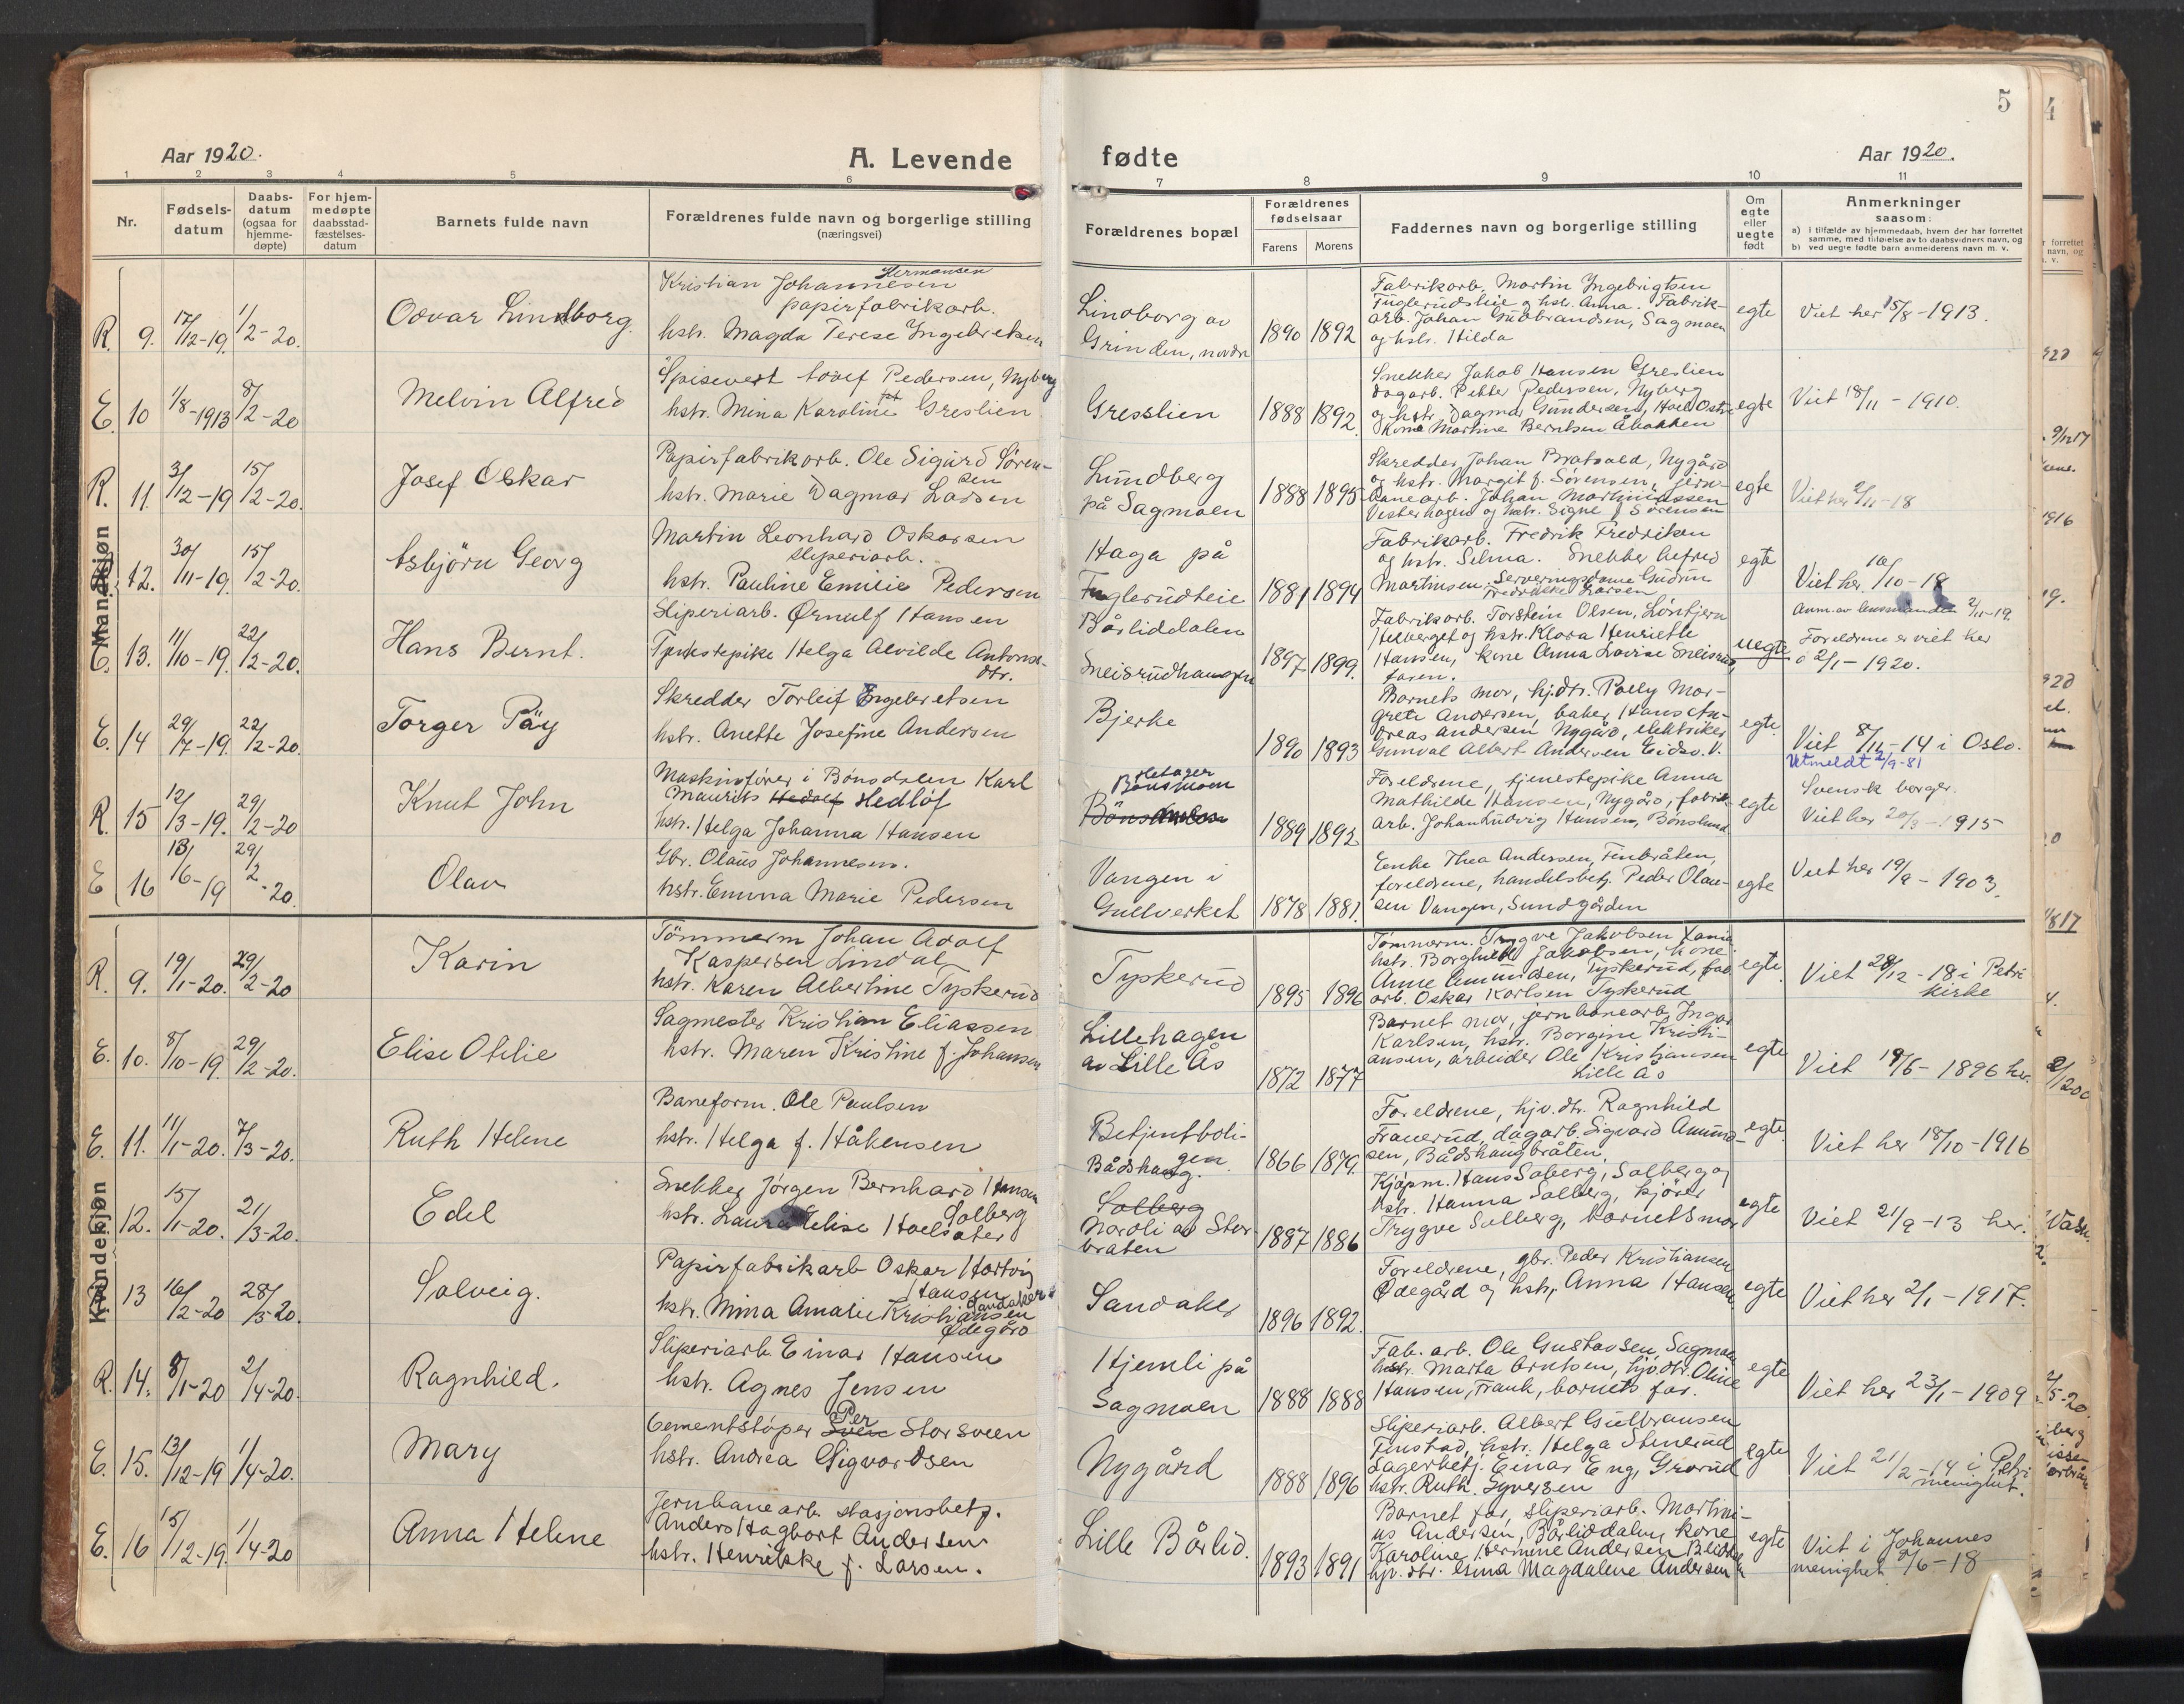 5
Aar 1920.
A. Levende
fødte
Aar 1920.
1 2 3 4 5 6 7 8 9 10 11
Nr.
Fødsels-
datum
Daabs-
datum
(ogsaa for
hjemme-
døpte)
For hjem-
medøpte
daabsstad-
fæstelses-
datum
Barnets fulde navn
Forældrenes fulde navn og borgerlige stilling
(næringsvei)
Forældrenes bopæl
Forældrenes
fødselsaar
Farens
Morens
Faddernes navn og borgerlige stilling
Om
egte
eller
uegte
født
Anmerkninger
saasom:
a) i tilfælde av hjemmedaab, hvem der har forrettet
samme, med tilføielse av to daabsvidners navn, og
b) ved uegte fødte barn anmelderens navn m. v.
Mandkjøn
R. 9. 17/12-19. 1/2-20.
Odvar Lindborg.
Kristian Johannesen Hermansen
papirfabrikarb.
hstr. Magda Terese Ingebretsen
Lindborg av
Grinden, nordre
1890 1892
Fabrikarb. Martin Ingebrigtsen
Fuglerudsteie og hstr. Anna. Fabrik-
arb. Johan Gudbrandsen, Sagmoen
og hstr. Hilda
egte
Viet her 15/8-1913.
E. 10 1/8-1913 8/2-20
Melvin Alfred
Spisevert Adolf Pedersen, Nyberg
hstr. Mina Karoline Greslien
Gresslien
1888 1892.
Snekker Jakob Hansen Greslien
dagarb. Petter Pedersen, Nyberg
og hstr. Dagmar Gundersen,
Kone Martine Berntsen Åbakken
egte
Viet 18/11-1910.
R. 11. 3/12-19 15/2-20.
Josef Oskar
Papirfabrikarb. Ole Sigurd Sören-
sen
hstr. Marie Dagmar Larsen
Lundberg
på Sagmoen
1888 1895
Skredder Johan Bratvold, Nygård
og hstr. Margit f. Sörensen, jern-
banearb. Johan Martiniussen
Vesterhagen og hstr. Signe f Sörensen
egte
Viet her 2/11-18
12. 30/11-19. 15/2-20.
Asbjörn Georg
Martin Leonhard Oskarsen
sliperiarb.
hstr. Pauline Emilie Pedersen
Haga på
Fuglerudteie
1881 1894
Fabrikarb. Fredrik Fredriksen
og hstr. Selma. Snekker Alfred
Martinsen. Serveringsdame Gudrun
Fredrikke Larsen
egte
Viet her 10/10-18
13. 11/10-19. 22/2-20.
Hans Bernt.
Sliperiarb. Ørnulf Hansen
Tjenestepike Helga Alvilde Antons-
dtr.
Bårliddalen
Sneisrudhaugen
1897 1899.
Fabrikarb. Torstein Olsen, Löntjern
Helberget og hstr. Klara Henriette
Hansen, kone Anna Lovise Sneisrud,
faren.
uegte
Anm. av lensmanden 2/11-19.
Foreldrene er viet her
2/1-1920.
E. 14 29/7-19. 22/2-20.
Torger Påy
Skredder Torleif Engebretsen
hstr. Anette Josefine Andersen
Bjerke
1890 1893
Barnets mor, hj.dtr. Polly Mar-
grete Andersen, baker Hans An-
dreas Andersen Nygård, elektriker
Gunval Albert Andersen Eidsv. V.
egte.
Viet 8/11-14 i Oslo.
R. 15 12/3-19. 29/2-20
Knut John
Maskinförer i Bönsdalen Karl
Maurits Hedolf Hedlöf
hstr. Helga Johanna Hansen
Bönsmoen
1889 1892
Foreldrene, tjenestepike Anna
Mathilde Hansen, Nygård, fabrik-
arb. Johan Ludvig Hansen, Bönslund
egte
Utmeldt 2/9-81
Svensk borger.
Viet her 20/3-1915
E 16 13/6-19 29/2-20.
Olav
Gbr. Olaus Johannesen.
hstr. Emma Marie Pedersen
Vangen i
Gullverket
1878 1881.
Enke Thea Andersen, Finbråten,
foreldrene, handelsbetj. Peder Olau-
sen Vangen, Sundgården
egte
Viet her 19/9-1903
Kvindekjøn
R. 9. 19/1-20. 29/2-20
Karin
Tömmerm Johan Adolf
Kaspersen Lindal
hstr. Karen Albertine Tyskerud
Tyskerud
1895 1896
Tömmerm. Trygve Jakobsen
hstr. Borghild Jakobsen, kone
Anne Amundsen, Tyskerud, fab
arb. Oskar Karlsen Tyskerud
egte
Viet 28/12-18 i Petri
kirke
E. 10. 8/10-19. 29/2-20.
Elise Otilie
Sagmester Kristian Eliassen
hstr. Maren Kristine f. Johansen
Lillehagen
av Lille Ås
1872 1877
Barnet mor, jernbanearb. Ingar
Karlsen, hstr. Borgine Kristi-
ansen, arbeider Ole Kristjansen
Lille Ås
egte
Viet 19/6-1896 her.
E. 11. 11/1-20. 7/3-20.
Ruth Helene
Baneform. Ole Paulsen
hstr. Helga f. Håkensen
Betjentboli-
gen
Bådshaug.
1866 1879.
Foreldrene, hjv. dtr. Ragnhild
Frauerud, dagarb. Sigvard Amund-
sen, Bådshaugbråten.
egte
Viet her 18/10-1916
12. 15/1-20. 21/3-20.
Edel
Snekker Jörgen Bernhard Hansen
Solberg
hstr. Laura Elise Hoelsæter
Solberg
Nordli av Stor-
braten
1887 1886
Kjöpm. Hans Soberg, Solberg og
hstr. Hanna Solberg, kjörer
Trygve Solberg, barnets mor
egte
Viet 21/9-13 her.
13 16/2-20 28/3-20.
Solveig.
Papirfabrikarb Oskar Hartvig
Hansen Sandaker
hstr. Mina Amalie Kristiansen
Ødegård
Sandaker
1896 1892.
Foreldrene, gbr. Peder Kristiansen
Ødegård og hstr. Anna Hansen
egte
Viet her 2/1-1917.
R. 14. 8/1-20 2/4-20.
Ragnhild.
Sliperiarb. Einar Hansen
hstr. Agnes Jensen
Hjemli på
Sagmoen
1888 1888
Fab. arb. Ole Gustavsen, Sagmoen
hstr. Marta Arntsen, hjv. dtr. Oline
Hansen, Frank, barnets far.
egte
Viet her 23/1-1909
E. 15. 13/12-19 1/4-20.
Mary
Cementstöper Per Storsveen
hstr. Andrea Sigvardsen
Nygård
1888 1896
Sliperiarb. Albert Gulbransen
Finstad, hstr. Helga Stenerud
Lagerbetj. Einar Eng, Grorud
hstr. Ruth Syversen
egte
Viet 21/2-14 i Petri
menighet.
E. 16 15/12-19. 1/4-20
Anna Helene
Jernbanearb. stasjonsbetj.
Anders Hagbart Andersen
hstr. Henrikke f. Larsen.
Lille Bårlid.
1893 1891
Barnet far, sliperiarb. Martini-
us Andersen, Bårliddalen, kone
Karoline Hermine Andersen
hjv. dtr. Asma Magdalene Andersen
egte
Viet i Johannes
menighet 8/6-18